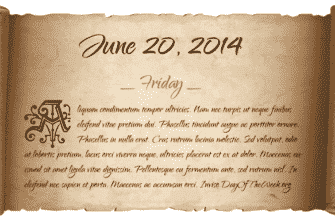 June 20, 2014
Friday
Aliquam condimentum tempor ultricies. Nam nec turpis ut neque finibus
eleifend vitae pretium dui. Phasellus tincidunt augue ac porttitor ornare.
Phasellus in nulla erat. Cras rutrum lacinia molestie. Sed volutpat, odio
at lobortis pretium, lacus orci viverra neque, ultricies placerat est ex at dolor. Maecenas eu
quam sit amet ligula vitae dignissim. Pellentesque eu fermentum ante, sed rutrum nisl. In
eleifend nec sapien et porta. Maecenas ac accumsan orci.